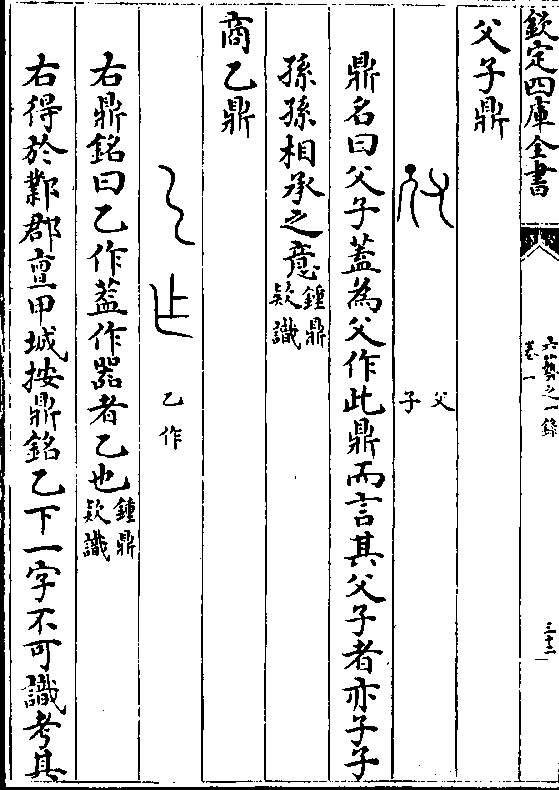 欽定四庫全書
六藝之一錄
卷一
三十二
父子鼎
父
子
鼎名曰父子蓋為父作此鼎而言其父子者亦子子
孫孫相承之意鍾鼎欵識
商乙鼎
乙作
右鼎銘曰乙作蓋作器者乙也鍾鼎欵識
右得於鄴郡亶甲城按鼎銘乙下一字不可識考其